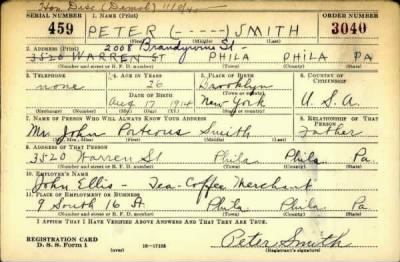 Hon. Disc (Demob) 11/6/45
SERIAL NUMBER 1. NAME (Print) ORDER NUMBER
459 PETER (-----) SMITH 3040
(First) (Middle) (Last)
2. ADDRESS (Print) 2008 Brandywine St-
3520 WARREN ST PHILA PHILA PA
(Number and street or R. F. D. number) (Town) (County) (State)
3. TELEPHONE 4. AGE IN YEARS 5. PLACE OF BIRTH 6. COUNTRY OF CITIZENSHIP
none 26 Brooklyn
(Town or county)
Aug 17 1914 New York U.S.A.
(Exchange) (Number) (Mo.) (Day) (Yr.) (State or country)
7. NAME OF PERSON WHO WILL ALWAYS KNOW YOUR ADDRESS 8. RELATIONSHIP OF THAT PERSON
Mr. John Porteous Smith Father
(Mr., Mrs., Miss) (First) (Middle) (Last)
9. ADDRESS OF THAT PERSON
3520 Warren St Phila Phila Pa.
(Number and street or R. F. D. number) (Town) (County) (State)
10. EMPLOYER'S NAME
John Ellis - Tea-Coffee Merchant
11. PLACE OF EMPLOYMENT OR BUSINESS
9 South 16 St Phila Phila Pa
(Number and street or R. F. D. number) (Town) (County) (State)
I AFFIRM THAT I HAVE VERIFIED ABOVE ANSWERS AND THAT THEY ARE TRUE.
REGISTRATION CARD
D. S. S. Form 1 (over) 16-17135 Peter Smith
(Registrant's signature)